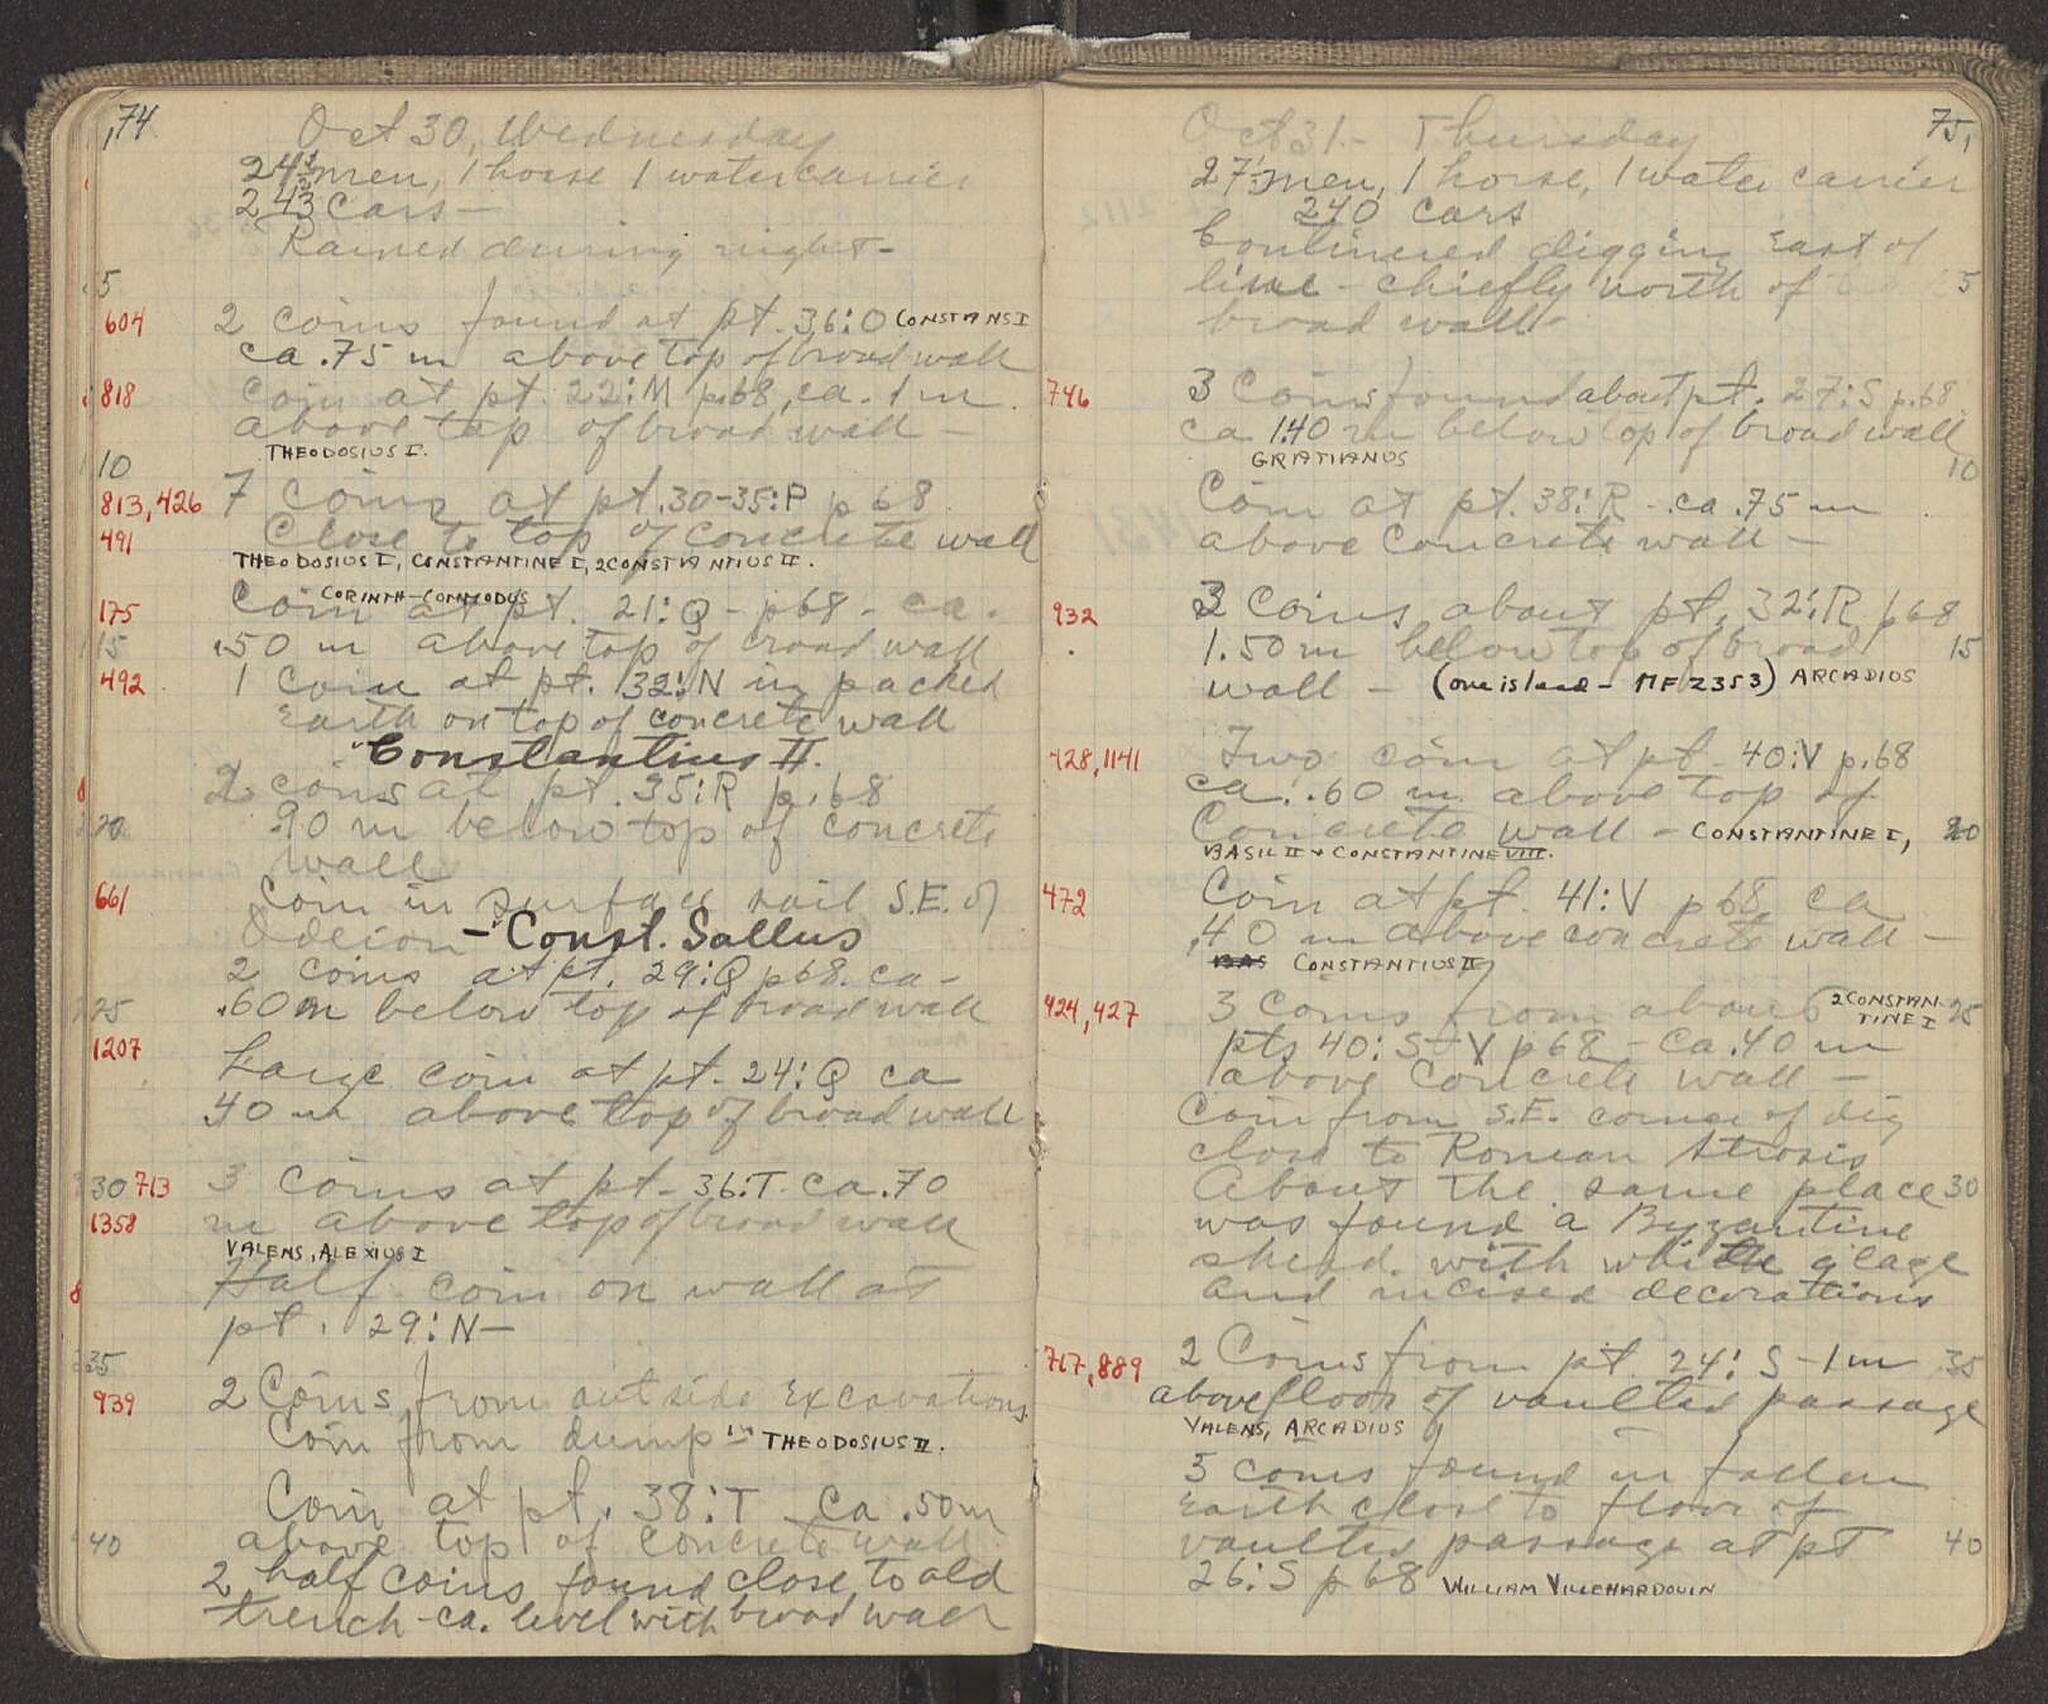 74
Oct 30, Wednesday
24½ men, 1 horse 1 watercarrier
243 cars —
Rained during night –
5
604 2 coins found at pt. 36:O CONSTANS I
ca .75 m above top of broad wall
818 Coin at pt. 22:M p.68, ca. 1 m
above top of broad wall —
10 THEODOSIUS I.
813,426 7 coins at pt. 30-35:P p 68
491 Close to top of concrete wall
THEODOSIUS I, CONSTANTINE I, 2 CONSTANTIUS II.
CORINTH-COMMODUS
175 Coin at pt. 21:Q – p68 – ca.
15 .50 m above top of broad wall
492 1 Coin at pt. 32:N in packed
earth on top of concrete wall
Constantius II.
2 coins at pt. 35:R p.68
20 .90 m below top of concrete
wall
661 Coin in surface soil S.E. of
Odeion – Const. Gallus
2 coins at pt. 29:Q p68. ca –
25 .60 m below top of broad wall
1207
Large coin at pt. 24:Q ca
.40 m above top of broad wall
30 713 3 coins at pt – 36:T. ca .70
1358 m above top of broad wall
VALENS, ALEXIUS I
Half coin on wall at
pt. 29:N —
35
939 2 Coins from outside excavations
Coin from dump THEODOSIUS II.
Coin at pt. 38:T ca .50m
40 above top of concrete wall
2 half coins found close to old
trench – ca. level with broad wall
75
Oct 31 – Thursday
27½ men, 1 horse, 1 water carrier
240 cars
Continued digging East of
line – chiefly north of 5
broad wall –
746 3 Coins found about pt. 27:S p.68
ca 1.40 m below top of broad wall
GRATIANUS 10
Coin at pt. 38:R – ca .75 m
above Concrete wall —
932 3 Coins about pt. 32:R p68
1.50 m below top of broad 15
wall – (one is lead – MF 2353) ARCADIOS
428,1141 Two coin at pt – 40:V p.68
ca. .60 m above top of
Concrete wall – CONSTANTINE I, 20
BASIL II + CONSTANTINE VIII.
472 Coin at pt. 41:V p68 ca
.40 m above concrete wall —
BAS CONSTANTIUS II
424,427 3 Coins from about 2 CONSTAN- 25
TINE I
pts 40:S–V p68 – ca .40 m
above Concrete wall —
Coin from S.E. corner of dig
close to Roman Strosis
About the same place 30
was found a Byzantine
sherd with white glaze
and incised decorations
717,889 2 Coins from pt. 24:S – 1 m 35
above floor of vaulted passage
VALENS, ARCADIUS
5 coins found in fallen
earth close to floor of
vaulted passage at pt 40
26:S p 68 WILLIAM VILLEHARDOUIN